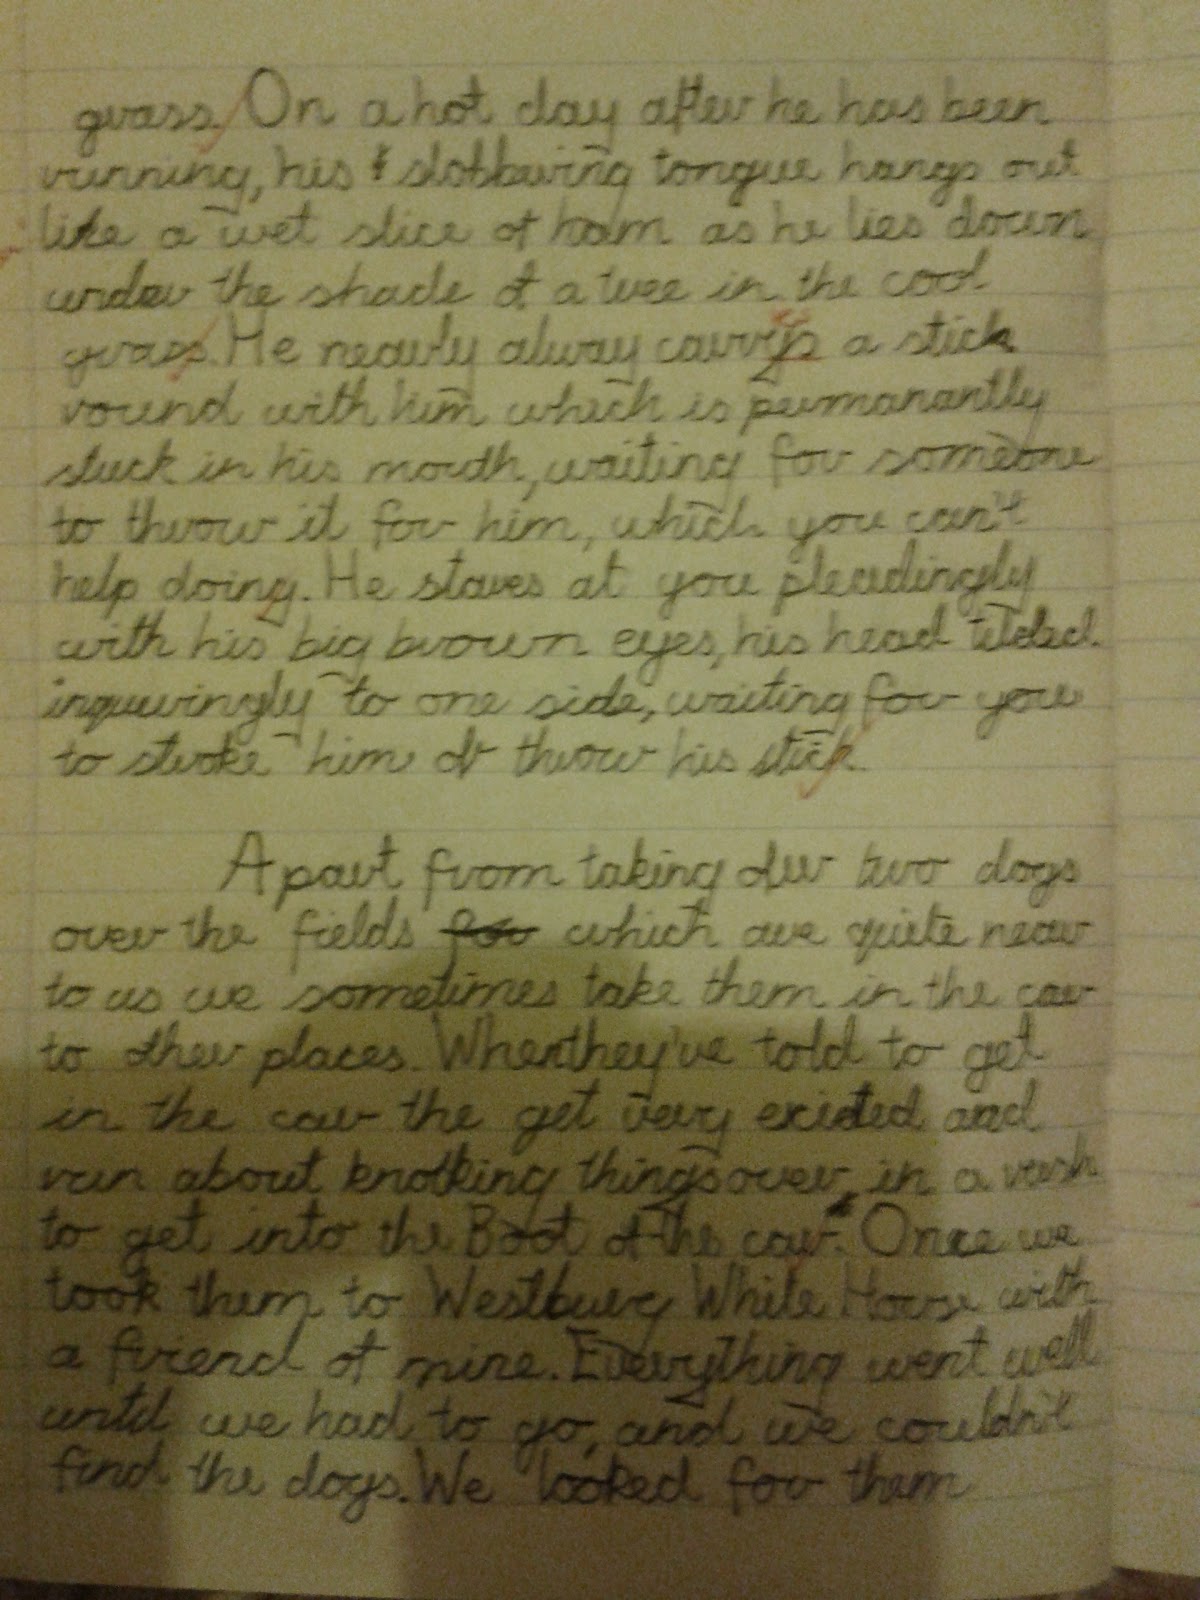 grass. On a hot day after he has been
running, his slobburing tongue hangs out
like a wet slice of ham as he lies down
under the shade of a tree in the cool
grass. He nearly alway carrys a stick
round with him which is purmanantly
stuck in his mouth, waiting for someone
to throw it for him, which you can't
help doing. He stares at you pleadingly
with his big brown eyes, his head
inquiringly to one side, waiting for you
to stroke him or throw his stick.
Apart from taking our two dogs
over the fields for which are quite near
to us we sometimes take them in the car
to other places. When they've told to get
in the car the get very excited and
run about knotking things over, in a rush
to get into the Boot of the car. Once we
took them to Westbury White Horse with
a friend of mine. Everything went well
until we had to go, and we couldn't
find the dogs. We looked for them